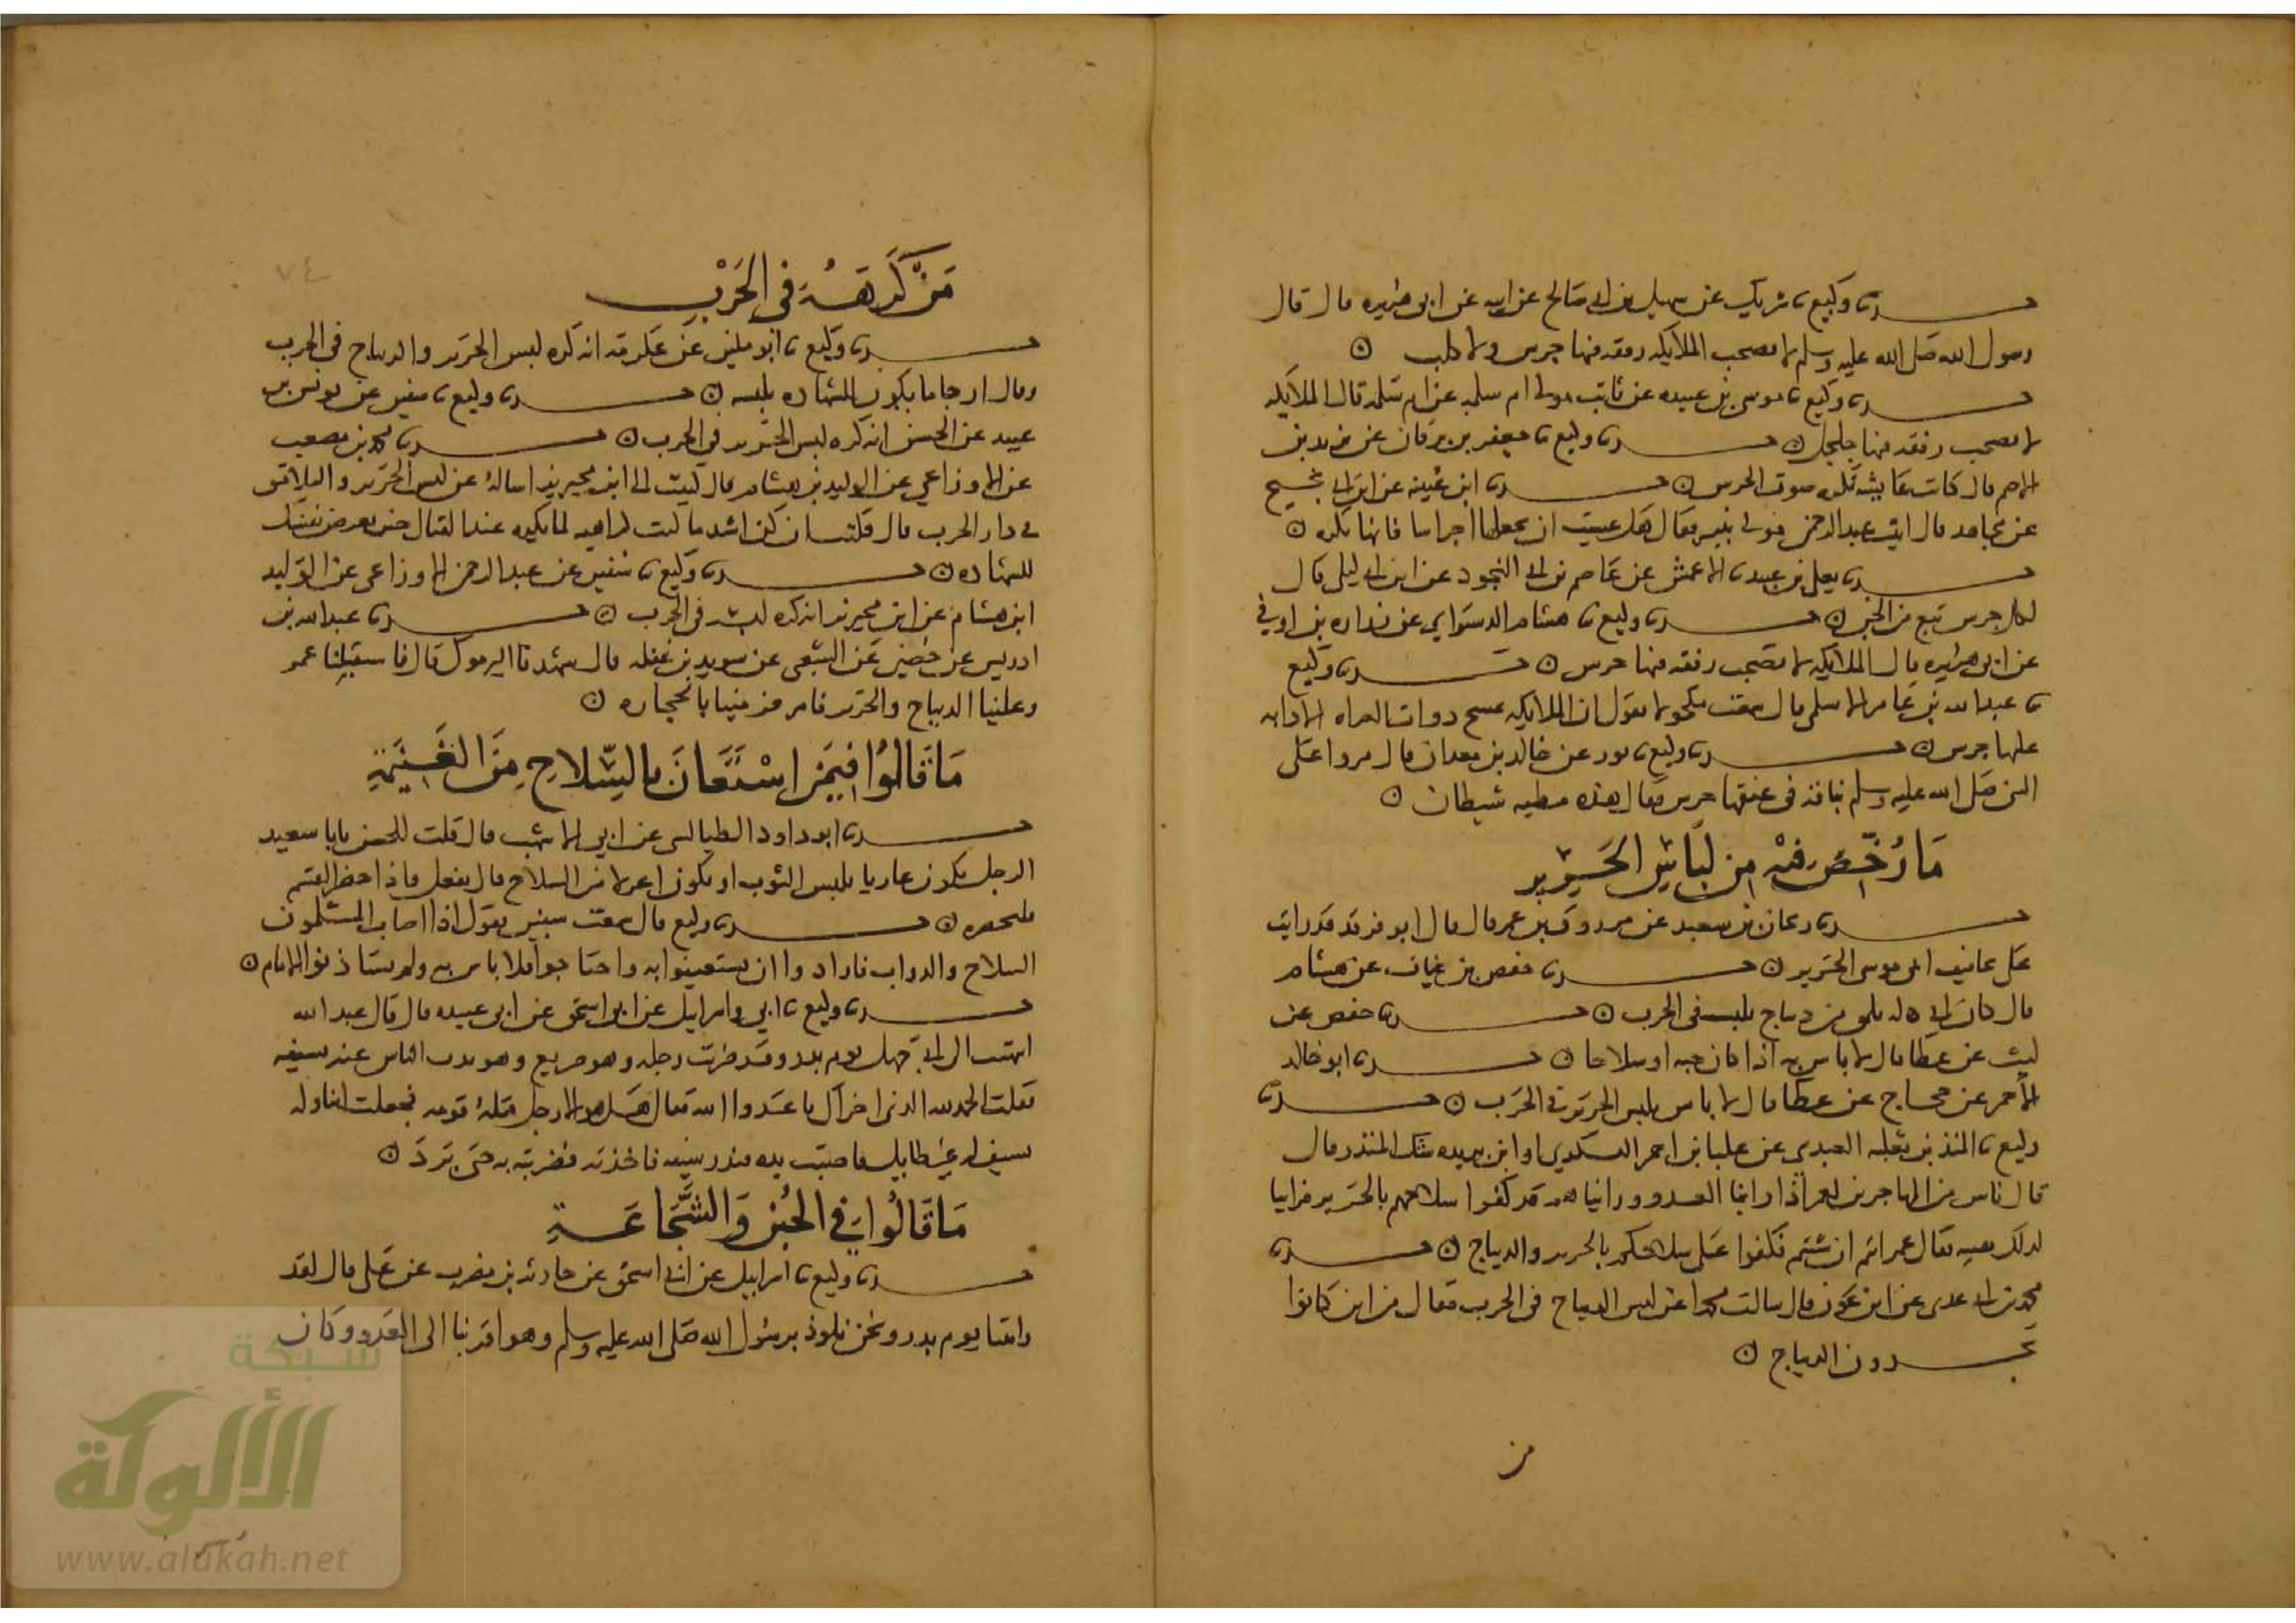 حدثنا وكيع نا شريك عن سهيل بن ابي صالح عن ابيه عن ابي هريره قال قال
رسول الله صلى الله عليه وسلم لا تصحب الملايكه رفقه فيها جرس ولا كلب ن
حدثنا وكيع نا موسى بن عبيده عن ثابت مولى ام سلمه عن ام سلمه قال الملايكه
لا تصحب رفقه فيها جلجل ن حدثنا وكيع نا جعفر بن برقان عن يزيد بن
الاصم قال كانت عايشه تكره صوت الجرس ن حدثنا ابن عيينه عن ابن ابي نجيح
عن مجاهد قال اتيت عبد الرحمن فقال هل عسيت ان تجعلها اجراسا فانها تكره ن
حدثنا يعلى بن عبيد نا الاعمش عن عاصم بن ابي النجود عن ابن ابي ليلى قال
لكل جرس تبع من الجن ن حدثنا وكيع نا هشام الدستواي عن زراره بن اوفى
عن ابي هريره قال الملايكه لا تصحب رفقه فيها جرس ن حدثنا وكيع
نا عبد الله بن عامر الاسلمي قال سمعت مكحولا يقول ان الملايكه تمسح دواب الغزاه الا دابه
عليها جرس ن حدثنا وكيع نا ثور عن خالد بن معدان قال مروا على
النبي صلى الله عليه وسلم بناقه في عنقها جرس فقال هذه مطيه شيطان ن
مَا رُخِّصَ فيْهِ مِن لبَاسِ الحَرِيْرِ
حدثنا ريحان بن سعيد عن مرزوق بن عمر قال قال ابو فرقد قد رايت
على تجافيف ابي موسى الحرير ن حدثنا حفص بن غياث عن هشام
قال كان ابي له يلمق من ديباج يلبسه في الحرب ن حدثنا حفص عن
ليث عن عطا قال لا باس به اذا كان جبه او سلاحا ن حدثنا ابو خالد
الاحمر عن حجاج عن عطا قال لا باس بلبس الحرير في الحرب ن حدثنا
وكيع نا المنذر بن ثعلبه العبدي عن علبا بن احمر اليشكري او ابن بريده شك المنذر قال
قال ناس من المهاجرين لعمر اذا راينا العدو وراينا هم قد كفوا سلاحهم بالحرير فراينا
لذلك هيبه فقال عمر انتم ان شيتم فكفوا على سلاحكم بالحرير والديباج ن حدثنا
محمد بن ابي عدي عن ابن عون قال سالت محمدا عن لبس الديباج في الحرب فقال من اين كانوا
يجدون الديباج ن
من
٧٤
مَنْ كَرِهَهُ فِى الحَرْبِ
حدثنا وكيع نا ابو مكين عن عكرمه انه كره لبس الحرير والديباج في الحرب
وقال ارجا ما يكون للشهاده يلبسه ن حدثنا وكيع نا سفين عن يونس بن
عبيد عن الحسن انه كره لبس الحرير في الحرب ن حدثنا محمد بن مصعب
عن الاوزاعي عن الوليد بن هشام قال كتبت الى ابن محيريز اساله عن لبس الحرير واليلامق
في دار الحرب قال فكتب ان كن اشد ما كنت كراهيه لما تكره عند القتال حين تعرض نفسك
للشهاده ن حدثنا وكيع نا سفين عن عبد الرحمن الاوزاعي عن الوليد
ابن هشام عن ابن محيريز انه كره لبسه في الحرب ن حدثنا عبد الله بن
ادريس عن حصين عن الشعبي عن سويد بن غفله قال شهدنا اليرموك قال فاستقبلنا عمر
وعلينا الديباج والحرير فامر فرمينا بالحجاره ن
مَا قَالُوا فِيمَنِ اسْتَعَانَ بالسِّلاحِ مِنَ الغَنِيْمَةِ
حدثنا ابو داود الطيالسي عن ابي الاشهب قال قلت للحسن يابا سعيد
الرجل يكون عاريا يلبس الثوب او يكون اعزلا من السلاح قال يفعل فاذا حضر القسم
فليحضره ن حدثنا وكيع قال سمعت سفين يقول اذا اصاب المسلمون
السلاح والدواب فارادوا ان يستعينوا به واحتاجوا فلا باس به ولم يستاذنوا الامام ن
حدثنا وكيع نا ابي واسرايل عن ابي اسحق عن ابي عبيده قال قال عبد الله
انتهيت الى ابي جهل يوم بدر وقد ضربت رجله وهو صريع وهو يذب الناس عنه بسيفه
فقلت الحمد لله الذي اخزاك يا عدو الله فقال هل هو الا رجل قتله قومه فجعلت اتناوله
بسيف لي غير طايل فاصبت يده فندر سيفه فاخذته فضربته به حتى برد ن
مَا قَالُوا فِي الجُبْنِ وَالشَّجَاعَةِ
حدثنا وكيع نا اسراييل عن ابي اسحق عن حارثه بن مضرب عن علي قال لقد
رايتنا يوم بدر ونحن نلوذ برسول الله صلى الله عليه وسلم وهو اقربنا الى العدو وكان
شبكة
الألوكة
www.alukah.net